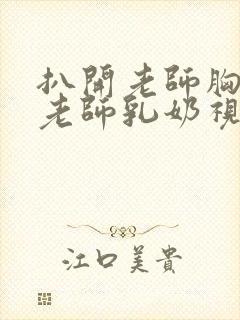 扒開老師胸
老師乳奶視
江口美貴